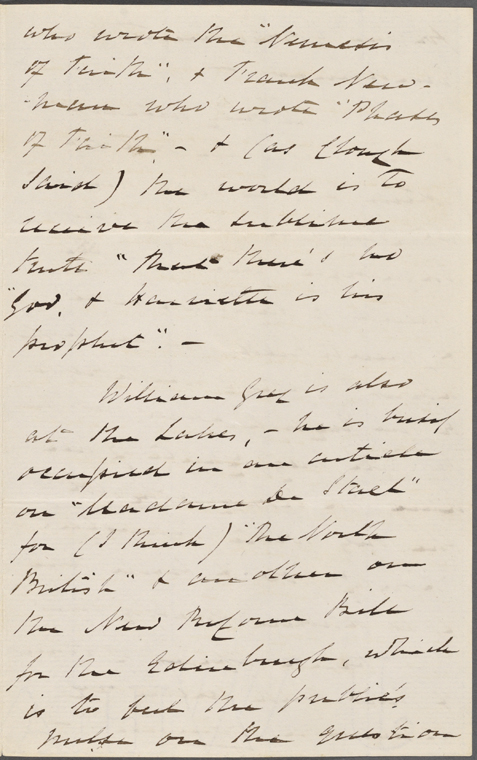 who wrote the "Nemesis
of Faith", & Frank New-
-man who wrote "Phases
of Faith" - & (as Clough
said) the world is to
receive the sublime
truth "that there's no
"God, & Harriette is his
prophet". -
William Greg is also
at the Lakes, - he is busy
occupied in an article
on "Madame de Stael"
for (I think) "The North
British" & another on
the New Reform Bill
for the Edinburgh, which
is to feel the public's
pulse on the question